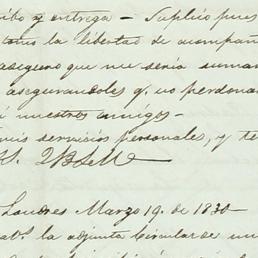 ribo y entrega - Suplico pues
tomo la libertad de acompañ
aseguro que me seria suma
asegurandoles q. no perdona
i nuestros amigos -
mis servicios personales, y te
S.
Londres Marzo 19. de 1830 -
la adjunta Circular de un